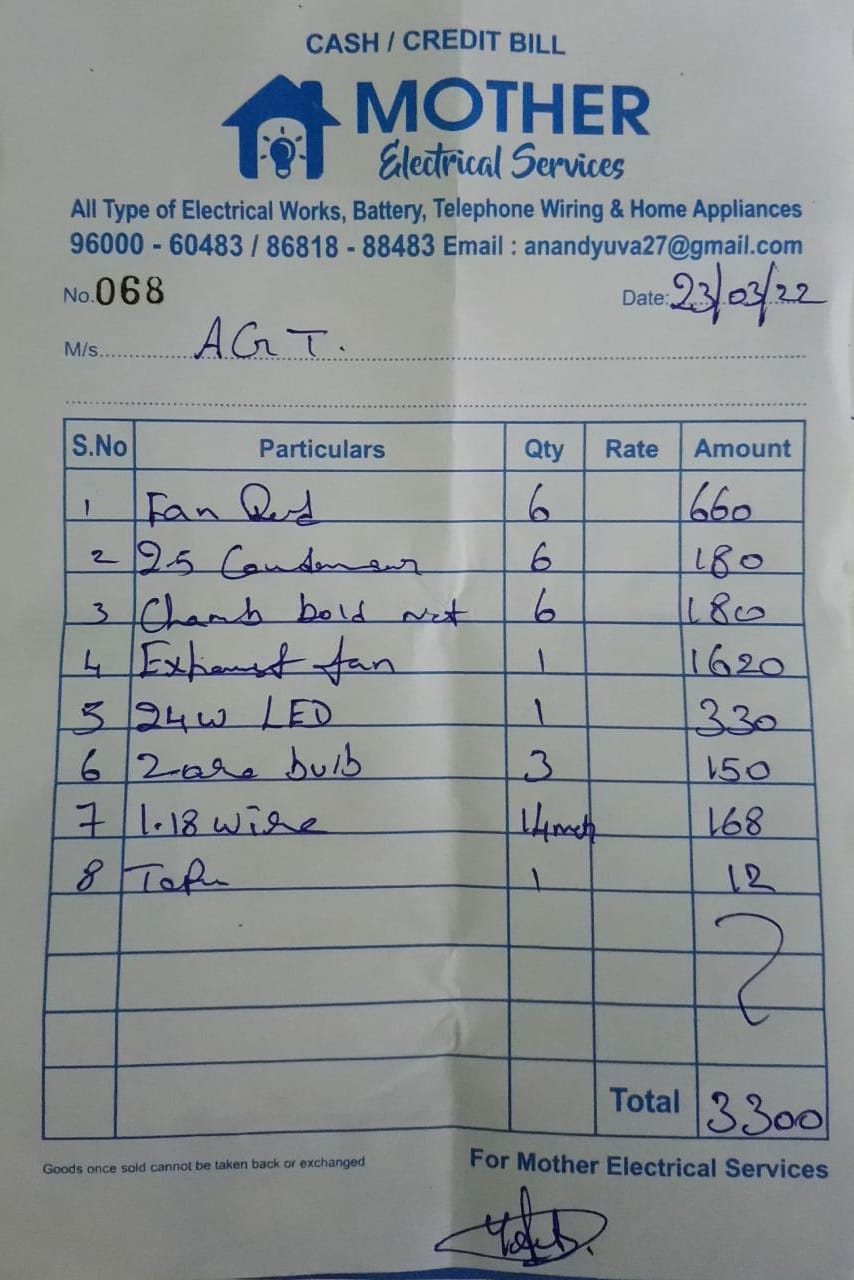 CASH / CREDIT BILL
MOTHER
Electrical Services
All Type of Electrical Works, Battery, Telephone Wiring & Home Appliances
96000 - 60483 / 86818 - 88483 Email : anandyuva27@gmail.com
No. 068 Date: 23/03/22
M/s. AGT.
S.No Particulars Qty Rate Amount
1 Fan 6 660
2 25 6 180
3 bold 6 180
4 Exhaust fan 1 1620
5 24w LED 1 330
6 bulb 3 150
7 1.18 wire 14 168
8 1 12
Total 3300
Goods once sold cannot be taken back or exchanged
For Mother Electrical Services